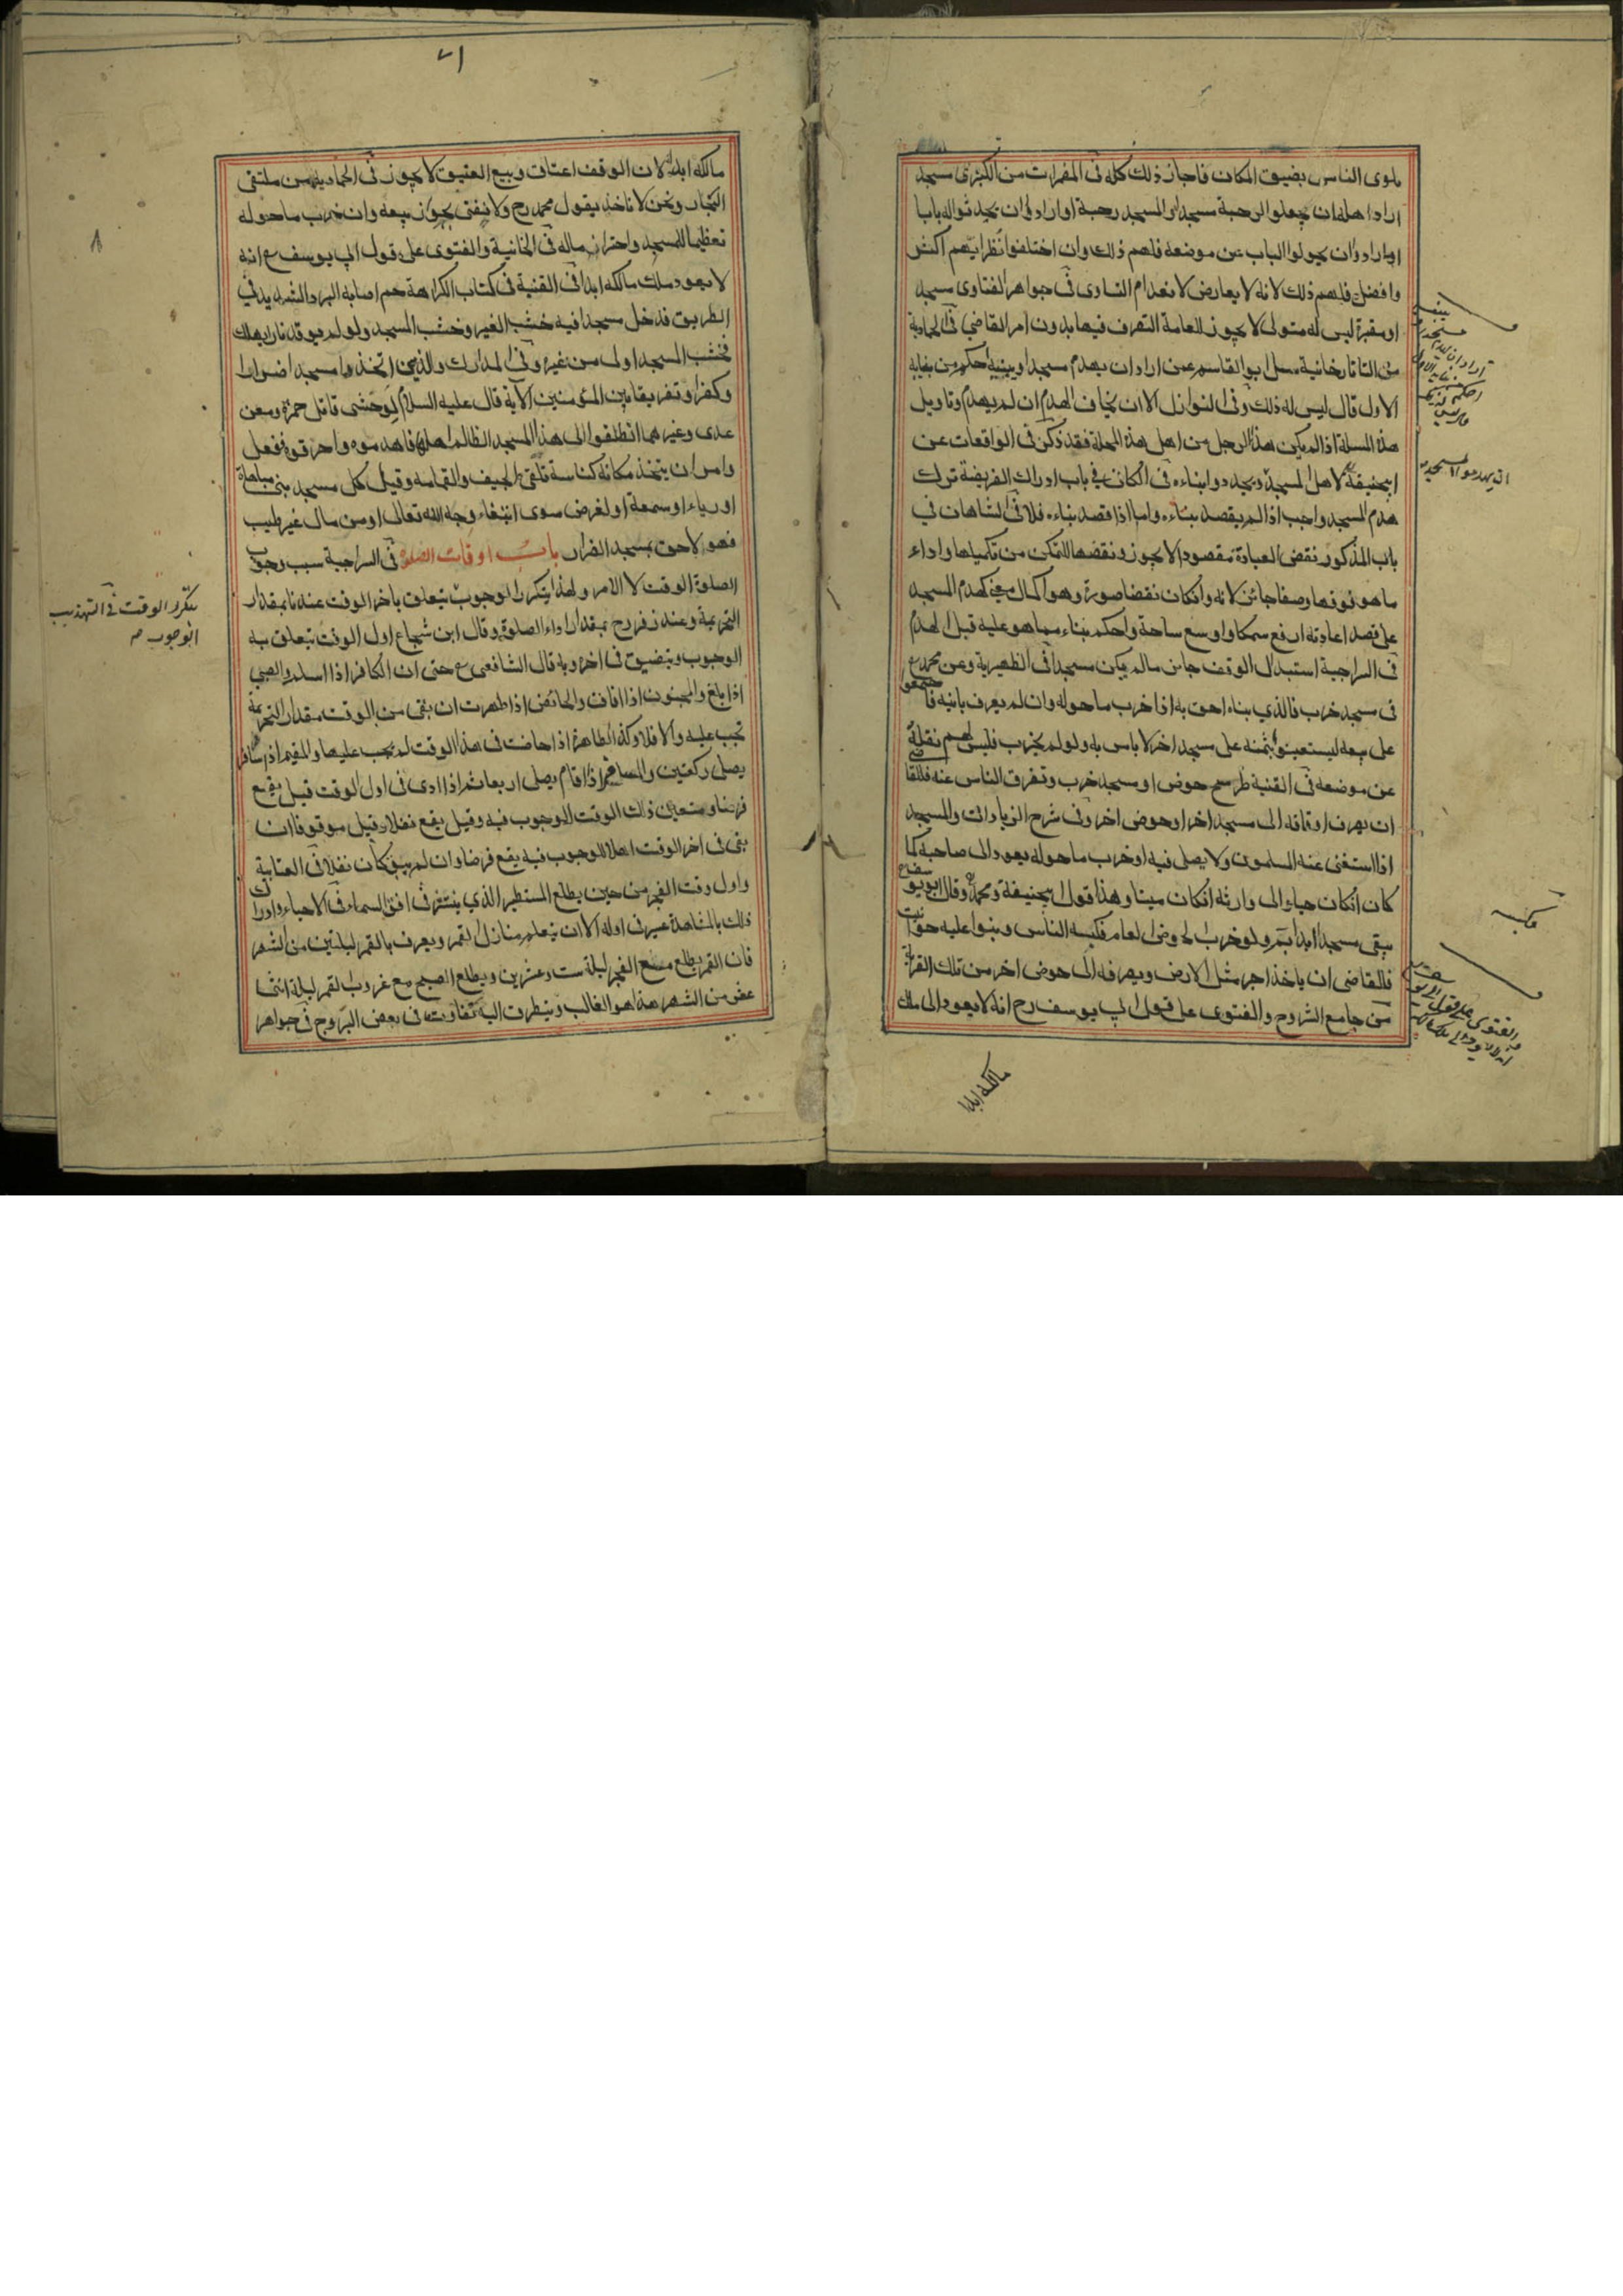 بلوى الناس بضيق المكان فاجاز ذلك كله فى المضمرات من الكبرى مسجد
اراد اهله ان يجعلوا الرحبة مسجدا او المسجد رحبة او ارادوا ان يجدثوا له بابا
او ارادوا ان يحولوا الباب عن موضعه فلهم ذلك وان اختلفوا نظر ايهم اكثر
وافضل فلهم ذلك لانه لا يعارض لانعدام التساوى فى جواهر الفتاوى مسجد
او مقبرة ليس له متولى لا يجوز للعامة التصرف فيها بدون امر القاضى فى الحمادية
من التاتارخانية سئل ابو القاسم عن اراد ان يهدم مسجدا ويبنيه احكم من بنايه
الاول قال ليس له ذلك وفى النوازل الا ان يخاف الهدم ان لم يهدم وتاويل
هذه المسلة اذا لم يكن هذا الرجل من اهل هذه المحلة فقد ذكر فى الواقعات عن
ابيحنيفة لاهل المسجد ويجددوا بناءه فى الكافى فى باب ادراك الفريضة ترك
هدم المسجد واجب اذا لم يقصد بناءه واما اذا قصد بناءه فلا فى الشاهان فى
باب المذكور نقض العبادة مقصودا لا يجوز ونقضها للتمكن من تكميلها واداء
ما هو فوقها وصفا جائز لانه وان كان نقضا صورة وهو اكمال معنى كهدم المسجد
على قصد اعادته ارفع سمكا واوسع ساحة واحكم بناء مما هو عليه قبل الهدم
فى السراجية استبدال الوقف جائز مالم يكن مسجدا فى الظهيرية وعن محمد رح
فى مسجد خرب فالذي بناه احق به اذا خرب ما حوله وان لم يعرف بانيه فاجتمعوا
على بيعه ليستعينوا بثمنه على مسجد اخر لا باس به ولو لم يخرب فليس لهم نقله
عن موضعه فى القنية ظم سح حوض او مسجد خرب وتفرق الناس عنه فللقاضى
ان يصرف اوقافه الى مسجد اخر او حوض اخر وفى شرح الزيادات والمسجد
اذا استغنى عنه المسلمون ولا يصلى فيه او خرب ما حوله يعود الى صاحبه كما
كان ان كان حيا والى وارثه ان كان ميتا وهذا قول ابيحنيفة ومحمد وقال ابو يوسف رح
يبقى مسجدا ابدا بم ولو خرب الحوض العام فكبسه الناس وبنوا عليه حوانيت
فللقاضى ان ياخذ اجر مثل الارض ويصرفه الى حوض اخر من تلك القرية
من جامع الشروح والفتوى على قول ابي يوسف رح انه لا يعود الى ملك
مالكه ابدا
ان يهدموا المسجد
فكبسه
والفتوى على قول ابي يوسف
٧١
مالكه ابدا لان الوقف اعتاق وبيع العتيق لا يجوز فى الحمادية من ملتقى
البحار ونحن لا ناخذ بقول محمد رح ولا نفتى بجواز بيعه وان خرب ما حوله
تعظيما للمسجد واحترازا ماله فى الخانية والفتوى على قول ابي يوسف رح انه
لا يعود ملك مالكه ابدا فى القنية فى كتاب الكراهة حم اصابه البرد الشديد في
الطريق فدخل مسجدا فيه خشب الغير وخشب المسجد ولو لم يوقد نارا يهلك
فخشب المسجد اولى من غيره وفى المدارك والذين اتخذوا مسجدا ضرارا
وكفرا وتفريقا بين المؤمنين الاية قال عليه السلام لوحشى قاتل حمزة ومعن
عدى وغيرهما انطلقوا الى هذا المسجد الظالم اهله فاهدموه واحرقوه ففعل
وامر ان يتخذ مكانه كناسة تلقى الجيف والقمامه وقيل كل مسجد بنى مباهاة
او رياء او سمعة او لغرض سوى ابتغاء وجه الله تعالى او من مال غير طيب
فهو لاحق بمسجد الضرار باب اوقات الصلوة فى السراجية سبب وجوب
الصلوة الوقت لا الامر ولهذا يتكرر الوجوب يتعلق باخر الوقت عندنا بمقدار
التحريمة وعند زفر رح بمقدار اداء الصلوة وقال ابن شجاع اول الوقت يتعلق به
الوجوب ويتضيق فى اخره وبه قال الشافعى رح حتى ان الكافر اذا اسلم والصبي
اذا بلغ والمجنون اذا افاق والحائض اذا طهرت ان بقى من الوقت مقدار التحريمة
تجب عليه والا فلا وكذا الطاهرة اذا حاضت فى هذا الوقت لم يجب عليها والمقيم اذا سافر
يصلى ركعتين والمسافر اذا اقام يصلى اربعا ثم اذا ادى فى اول الوقت قيل يقع
فرضا ويتعين ذلك الوقت للوجوب فيه وقيل يقع نفلا وقيل موقوفا ان
بقى فى اخر الوقت اهلا للوجوب فيه يقع فرضا وان لم يبق كان نفلا فى العتابية
واول وقت الفجر من حين يطلع المستطير الذي ينتشر فى افق السماء فى الاحياء وادراك
ذلك بالمشاهدة عسر فى اوله الا ان يتعلم منازل القمر ويعرف بالقمر ليلتين من الشهر
فان القمر يطلع مع الفجر ليلة ست وعشرين ويطلع الصبح مع غروب القمر ليلة اثنى
عشر من الشهر هذا هو الغالب ويتطرق اليه تفاوت فى بعض البروج فى جواهر
يتكرر الوقت فى التهذيب
الوجوب صح